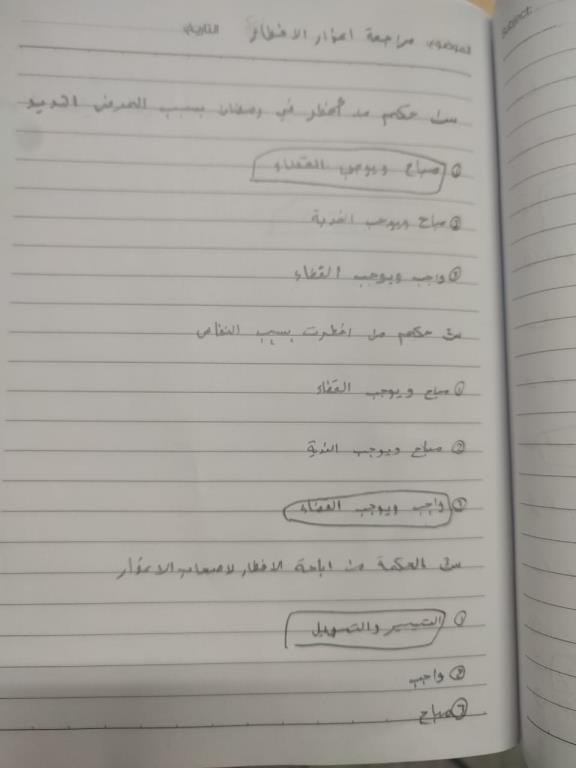 Subject:
الموضوع: مراجعة اعذار الافطار التاريخ:
س١ حكم من أفطر في رمضان بسبب المرض الشديد
① مباح ويوجب القضاء
② مباح ويوجب الفدية
③ واجب ويوجب القضاء
س٢ حكم من افطرت بسبب النفاس
① مباح ويوجب القضاء
② مباح ويوجب الفدية
③ واجب ويوجب القضاء
س٣ الحكمة من اباحة الافطار لاصحاب الاعذار
① التيسير والتسهيل
② واجب
③ مباح